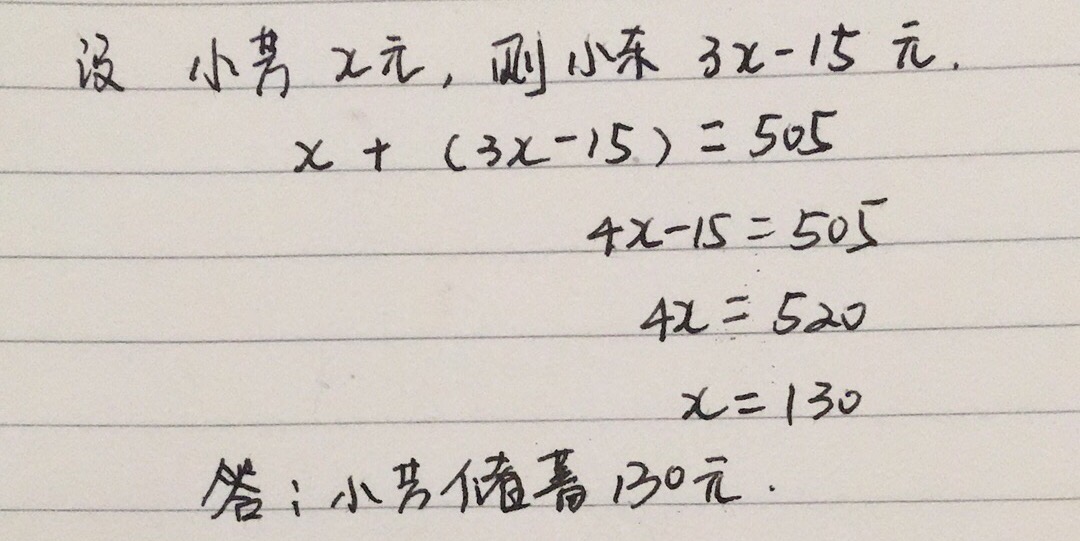 设 小芳 x元, 则小东 3x-15 元.
x + (3x-15) = 505
4x-15 = 505
4x = 520
x = 130
答: 小芳储蓄130元.